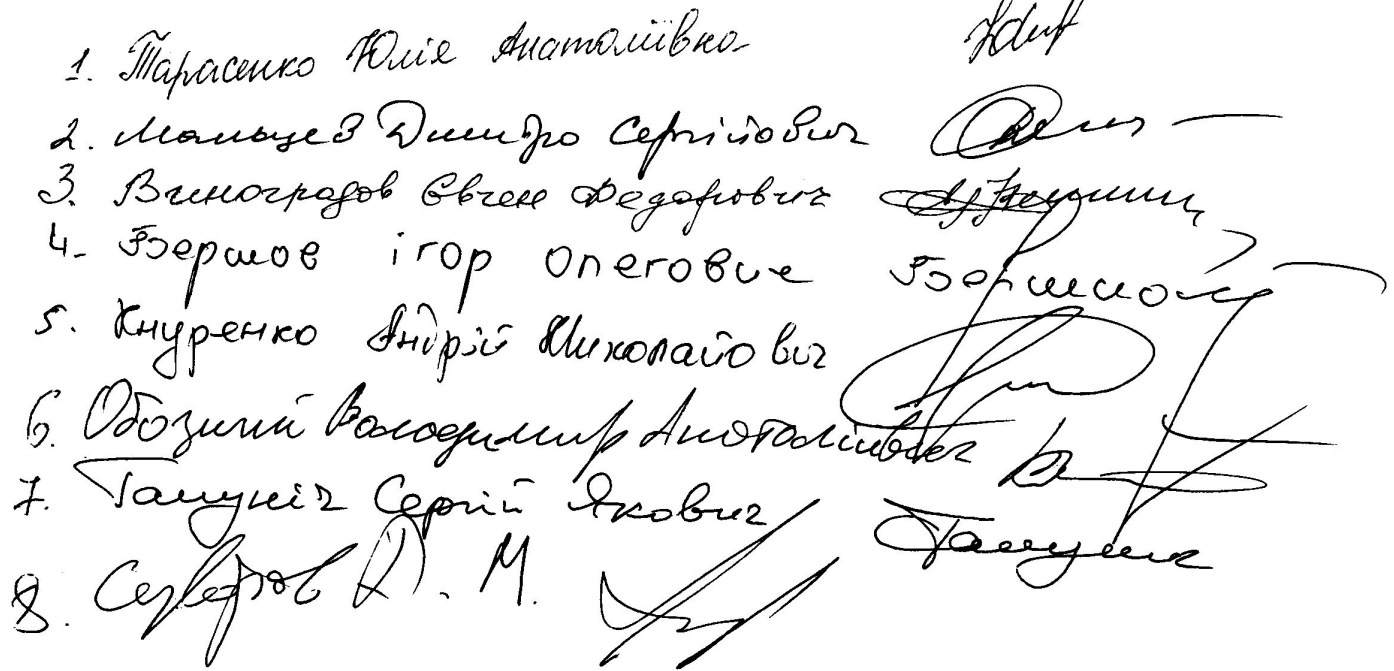 1. Тарасенко Юлія Анатоліївна
2. Мальцев Дмитро Сергійович
3. Виноградов Євген Федорович
4. Бершов ігор Олегович
5. Кнуренко Андрій Миколайович
6. Обозний Володимир Анатолійович
7. Гануніч Сергій Якович
8. Д. М.